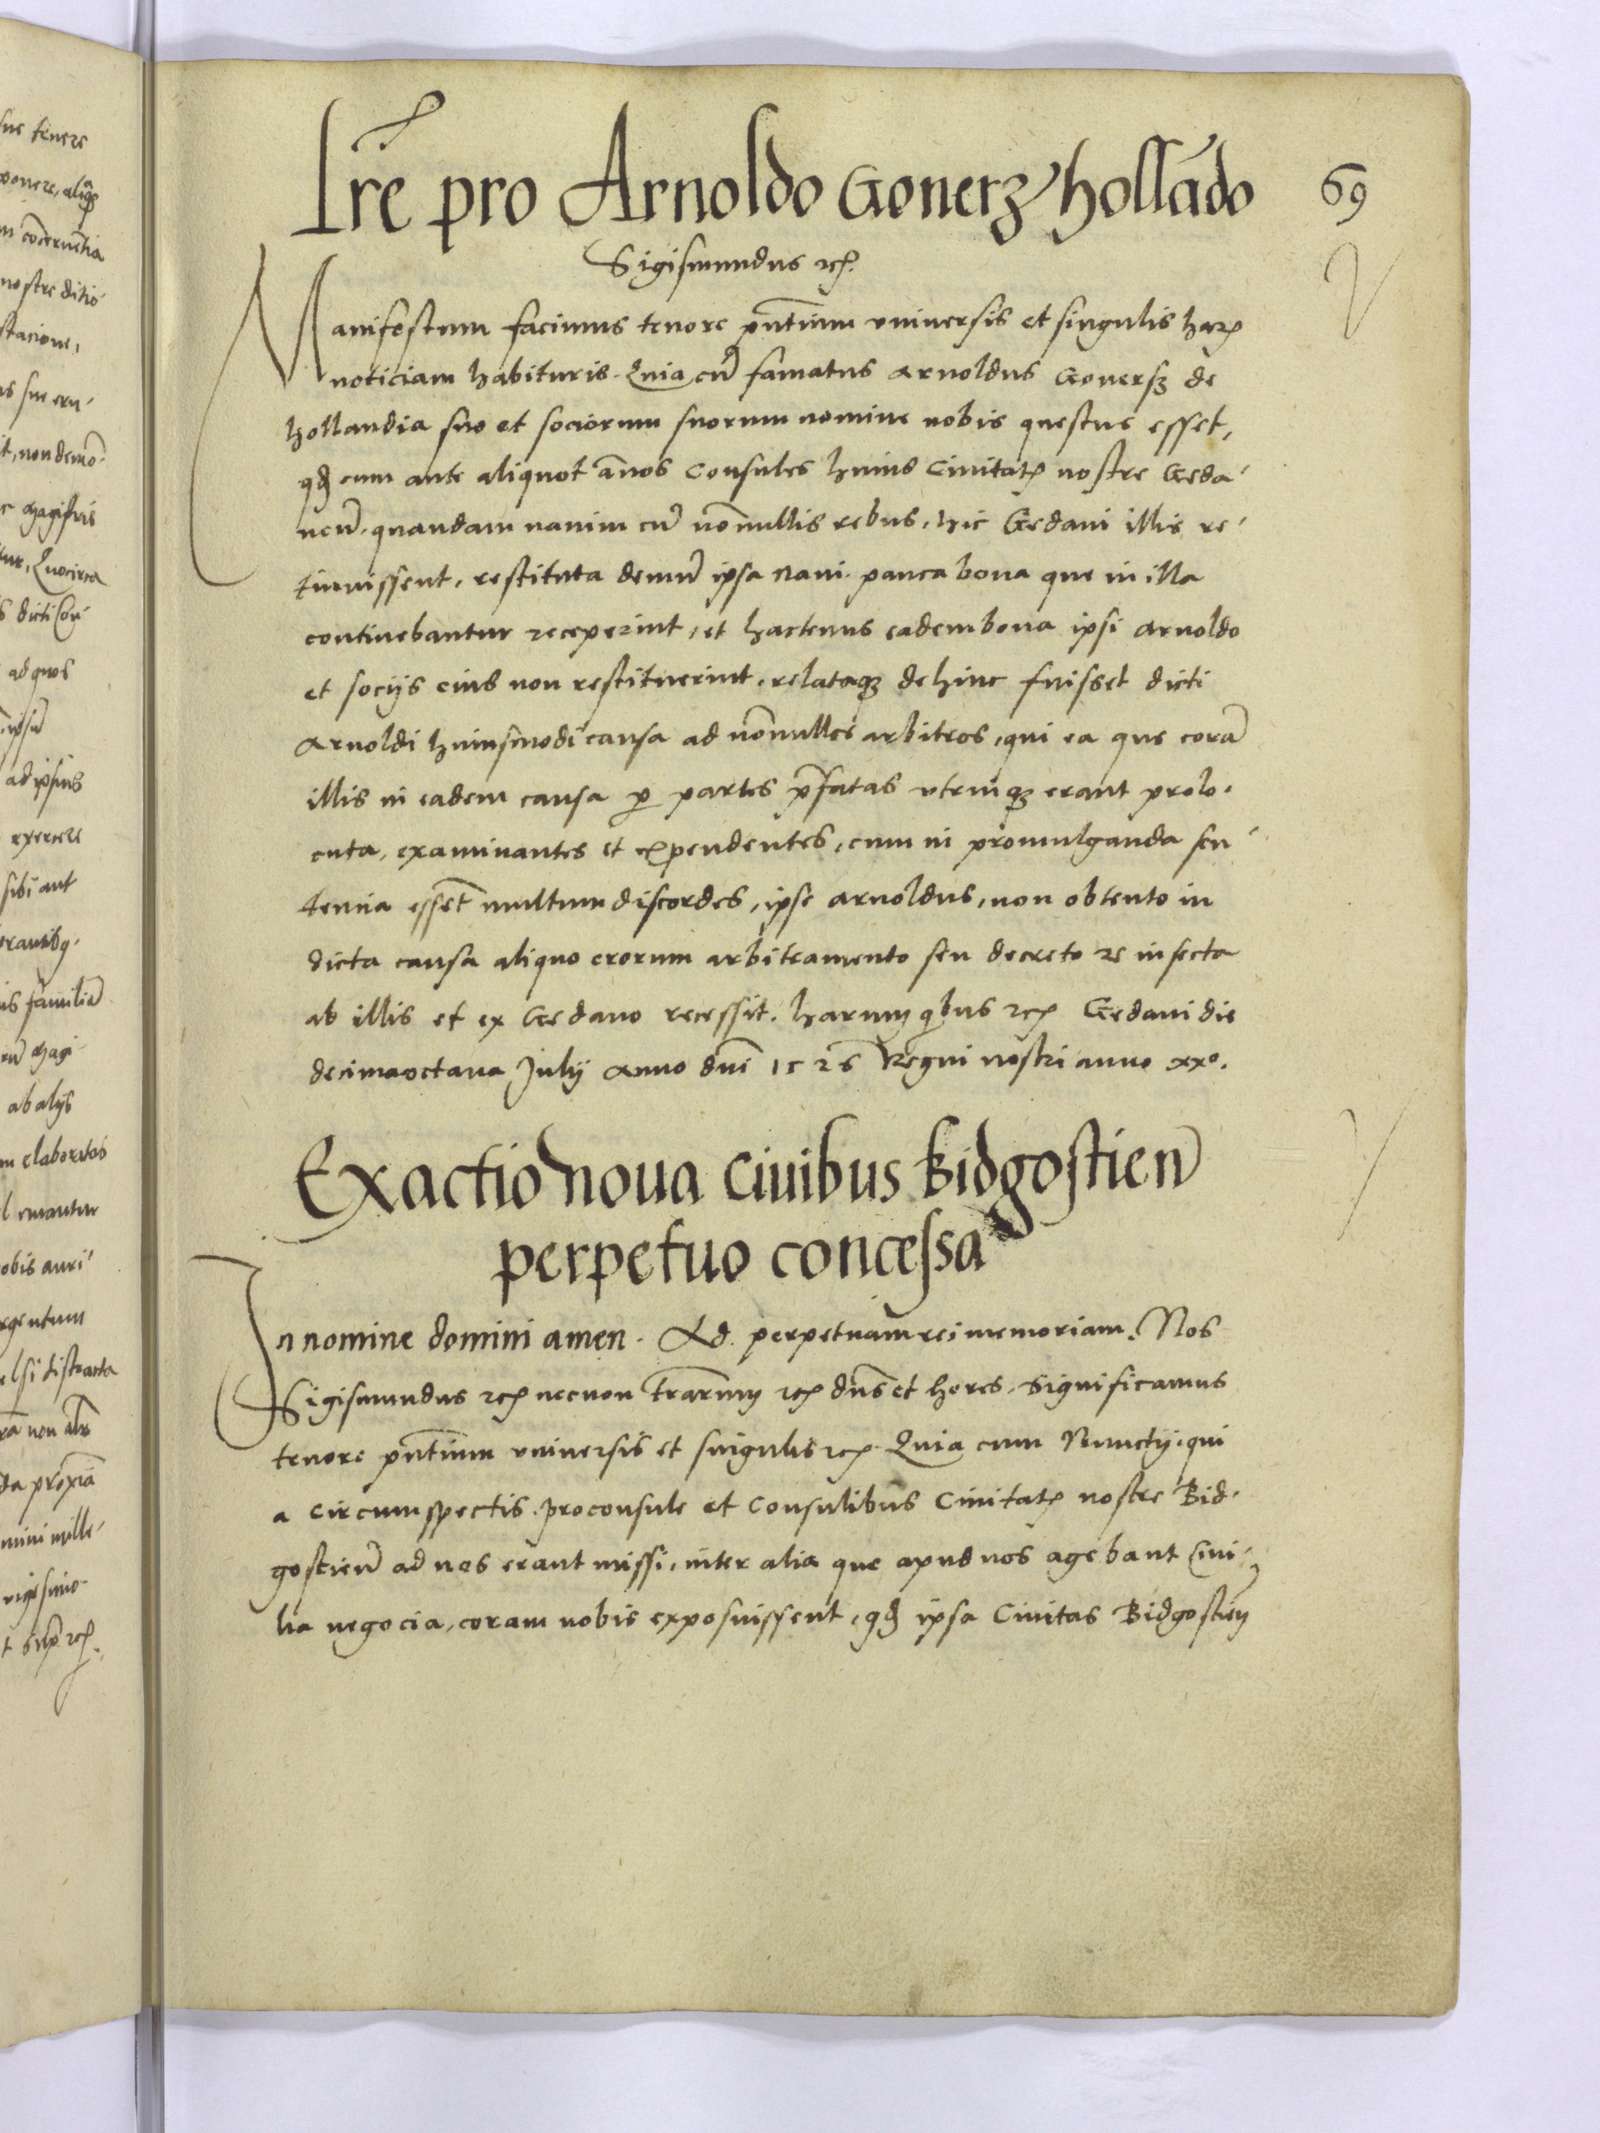 Lrẽ pro Arnoldo Gonerz hollãdo
69
Sigismundus rcꝫ.
Manifestum facimus tenore pñtium vniversis et singulis harꝫ
noticiam habituris. Quia cũ famatus Arnoldus Gonersz de
hollandia suo et sociorum suorum nomine nobis questus esset,
qđ cum ante aliquot ãnos Consules huius Civitatꝫ nostre Geda-
neñ. quandam navim cũ nõnullis rebus, hic Gedani illis re-
tinuissent, restituta demũ ipsa navi. pauca bona que in illa
continebantur receperint, et hactenus eadem bona ipsi Arnoldo
et socijs eius non restituerint, relataqꝫ dehinc fuisset dicti
Arnoldi huiusmodi causa ad nõnullos arbitros, qui ea que corã
illis in eadem causa ꝑ partes p̃fatas utrinqꝫ erant prolo-
cuta, examinantes et expendentes, cum in promulganda sen-
tencia esseñt multum discordes, ipse Arnoldus, non obtento in
dicta causa aliquo erorum arbitramento seu decreto re infecta
ab illis et ex Gedano recessit. harum qibus rcꝫ Gedani die
decimaoctava Julij Anno dñi 1526 Regni nostri anno xxº.
Exactio noua Ciuibus Bidgostieñ
perpetuo concessa
In nomine domini amen. Ad perpetuam rei memoriam. Nos
Sigismundus rcꝫ necnon t̃rarum rcꝫ dñs et heres. Significamus
tenore pñtium vniversis et singulis rcꝫ. Quia cum Nunctij. qui
a Circumspectis. proconsule et Consulibus Civitatꝫ nostre Bid-
gostieñ ad nos erant missi, inter alia que apud nos agebant Civi-
lia negocia, coram nobis exposuissent, qđ ipsa Civitas Bidgostień